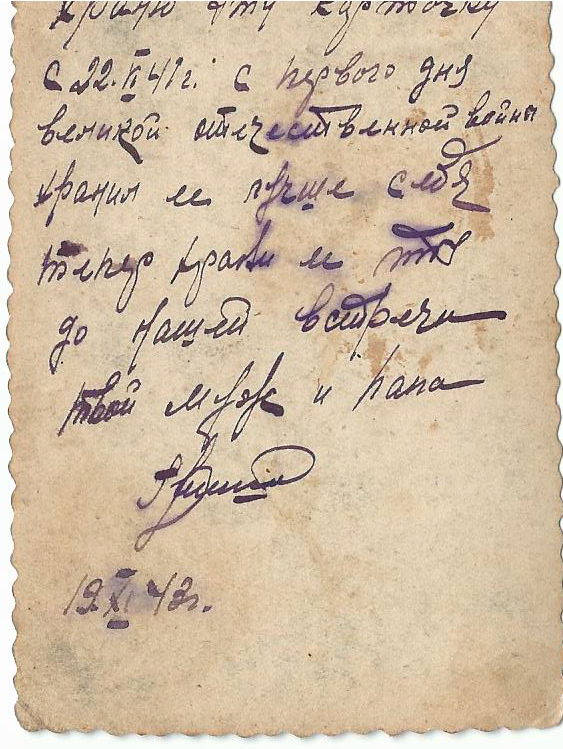 храню эту карточку
с 22.VI 41г. с первого дня
великой отечественной войны
хранил ее лучше себя
тепер храни ее ты
до нашей встречи
твой муж и папа
19.XI 43г.